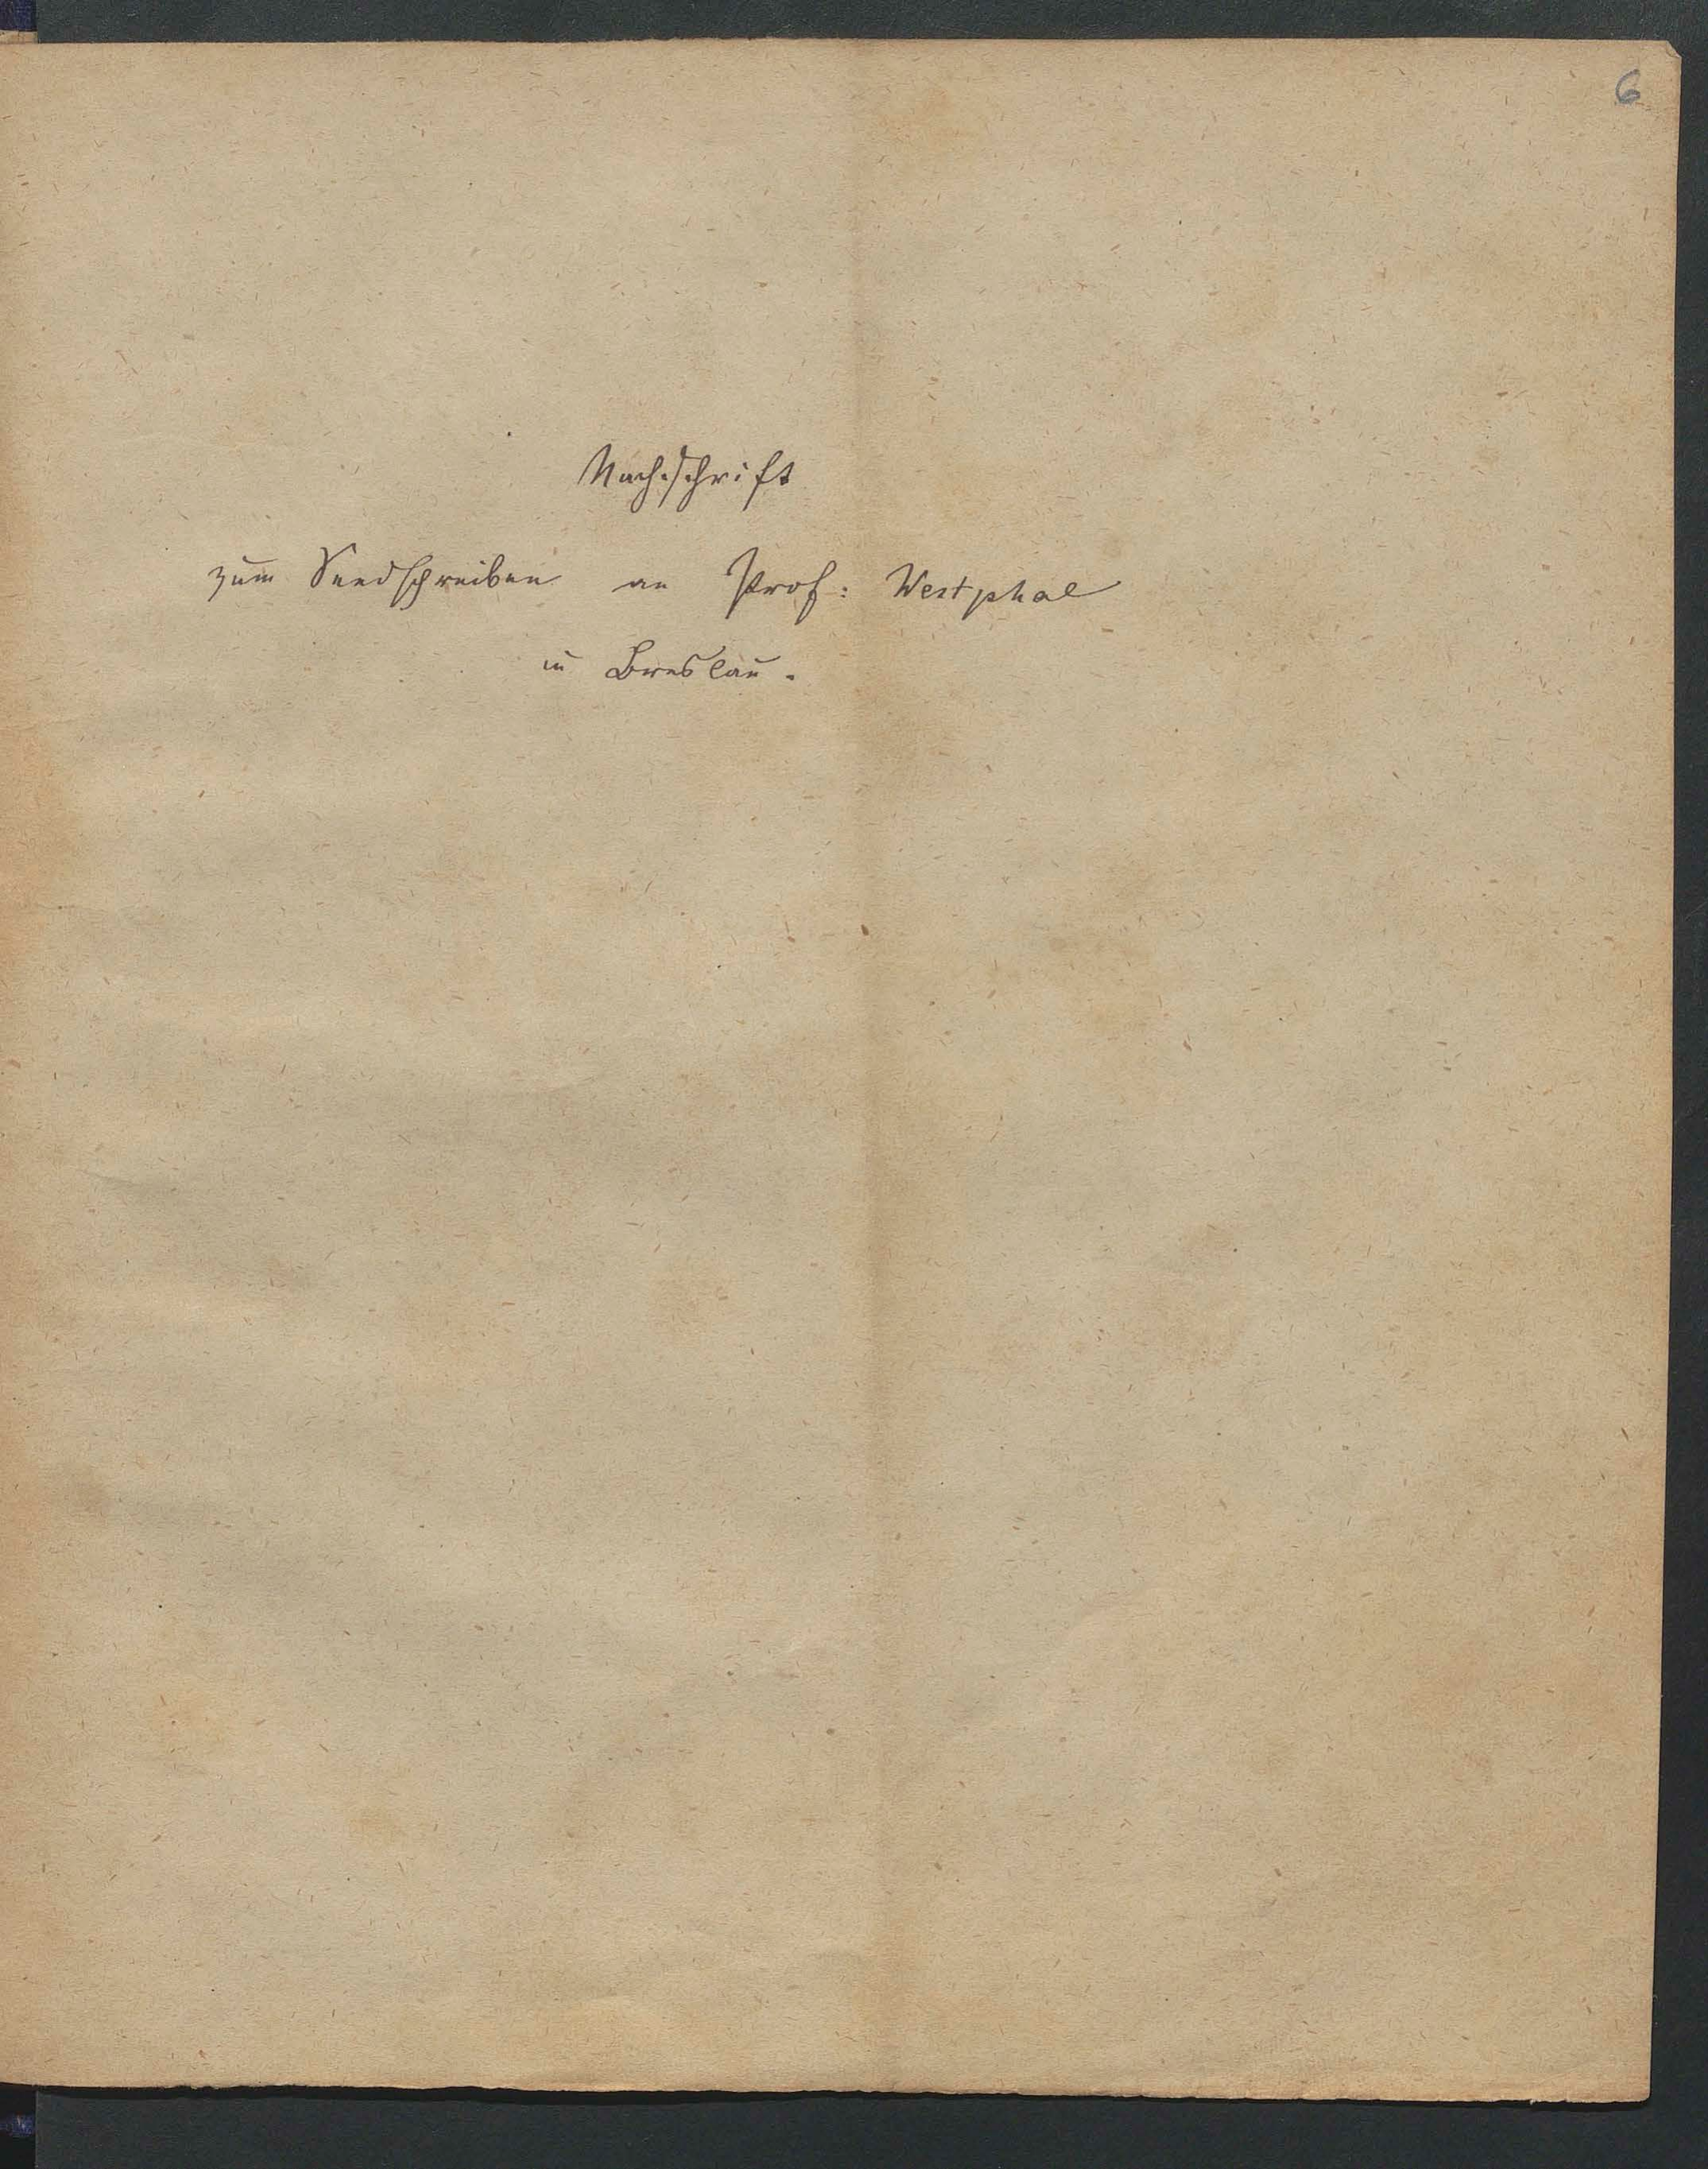 6
Nachschrift
zum Sendschreiben an Prof: Westphal
in Breslau.